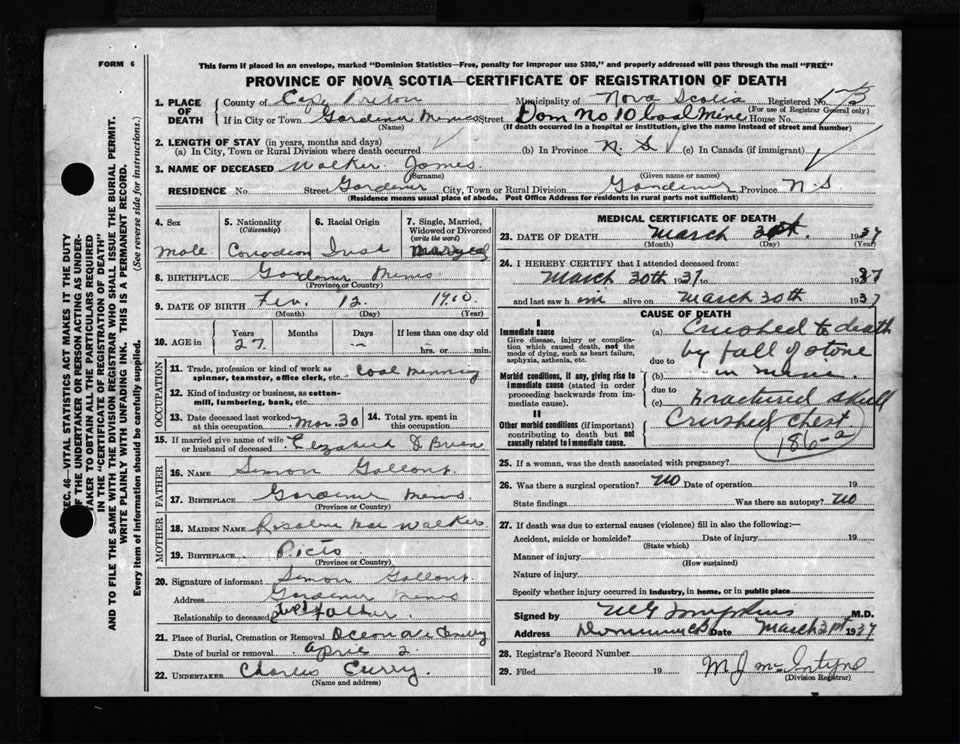 FORM 6
This form if placed in an envelope, marked "Dominion Statistics—Free, penalty for improper use $300," and properly addressed will pass through the mail "FREE"
PROVINCE OF NOVA SCOTIA—CERTIFICATE OF REGISTRATION OF DEATH
1. PLACE OF DEATH
County of Cape Breton Municipality of Nova Scotia Registered No.
(For use of Registrar General only)
If in City or Town Gardiner Mines Street Dom No 10 Coal Mine House No.
(Name) (If death occurred in a hospital or institution, give the name instead of street and number)
2. LENGTH OF STAY (in years, months and days)
(a) In City, Town or Rural Division where death occurred (b) In Province N. S (c) In Canada (if immigrant)
3. NAME OF DECEASED Walker James.
(Surname) (Given name or names)
RESIDENCE No. Street Gardiner City, Town or Rural Division Gardiner Province N.S
(Residence means usual place of abode. Post Office Address for residents in rural parts not sufficient)
4. Sex 5. Nationality (Citizenship) 6. Racial Origin 7. Single, Married, Widowed or Divorced (write the word)
Male Canadian Irish Married
8. BIRTHPLACE Gardiner Mines
(Province or Country)
9. DATE OF BIRTH Fev. 12. 1910.
(Month) (Day) (Year)
10. AGE in Years Months Days If less than one day old
27. — — hrs. or min.
OCCUPATION
11. Trade, profession or kind of work as spinner, teamster, office clerk, etc. Coal Mining
12. Kind of industry or business, as cotton-mill, lumbering, bank, etc.
13. Date deceased last worked at this occupation Mar. 30 14. Total yrs. spent in this occupation
15. If married give name of wife or husband of deceased O Brien
FATHER
16. NAME Simon Gallant
17. BIRTHPLACE Gardiner Mines
(Province or Country)
MOTHER
18. MAIDEN NAME Walker
19. BIRTHPLACE
(Province or Country)
20. Signature of informant Simon Gallant
Address Gardiner Mines
Relationship to deceased step father
21. Place of Burial, Cremation or Removal
Date of burial or removal April 2.
22. UNDERTAKER Charles Curry.
(Name and address)
MEDICAL CERTIFICATE OF DEATH
23. DATE OF DEATH March 1937
(Month) (Day) (Year)
24. I HEREBY CERTIFY that I attended deceased from:
March 30th 1937 to 1937
and last saw him alive on March 30th 1937
CAUSE OF DEATH
I
Immediate cause
Give disease, injury or complication which caused death, not the mode of dying, such as heart failure, asphyxia, asthenia, etc.
(a) Crushed to death
due to by fall of stone
Morbid conditions, if any, giving rise to immediate cause (stated in order proceeding backwards from immediate cause).
(b) in mine.
due to
(c) Fractured skull
II
Other morbid conditions (if important) contributing to death but not causally related to immediate cause.
Crushed chest.
186-a
25. If a woman, was the death associated with pregnancy?
26. Was there a surgical operation? No Date of operation 19
State findings Was there an autopsy? No
27. If death was due to external causes (violence) fill in also the following:—
Accident, suicide or homicide? Date of injury 19
(State which)
Manner of injury
(How sustained)
Nature of injury
Specify whether injury occurred in industry, in home, or in public place
Signed by Tompkins M.D.
Address Date March 31st 1937
28. Registrar's Record Number
29. Filed 19 M J McIntyre
(Division Registrar)
SEC. 46—VITAL STATISTICS ACT MAKES IT THE DUTY
OF THE UNDERTAKER OR PERSON ACTING AS UNDER-
TAKER TO OBTAIN ALL THE PARTICULARS REQUIRED
IN THE "CERTIFICATE OF REGISTRATION OF DEATH"
AND TO FILE THE SAME WITH THE DIVISION REGISTRAR WHO SHALL ISSUE THE BURIAL PERMIT.
WRITE PLAINLY WITH UNFADING INK. THIS IS A PERMANENT RECORD.
Every item of information should be carefully supplied. (See reverse side for instructions.)